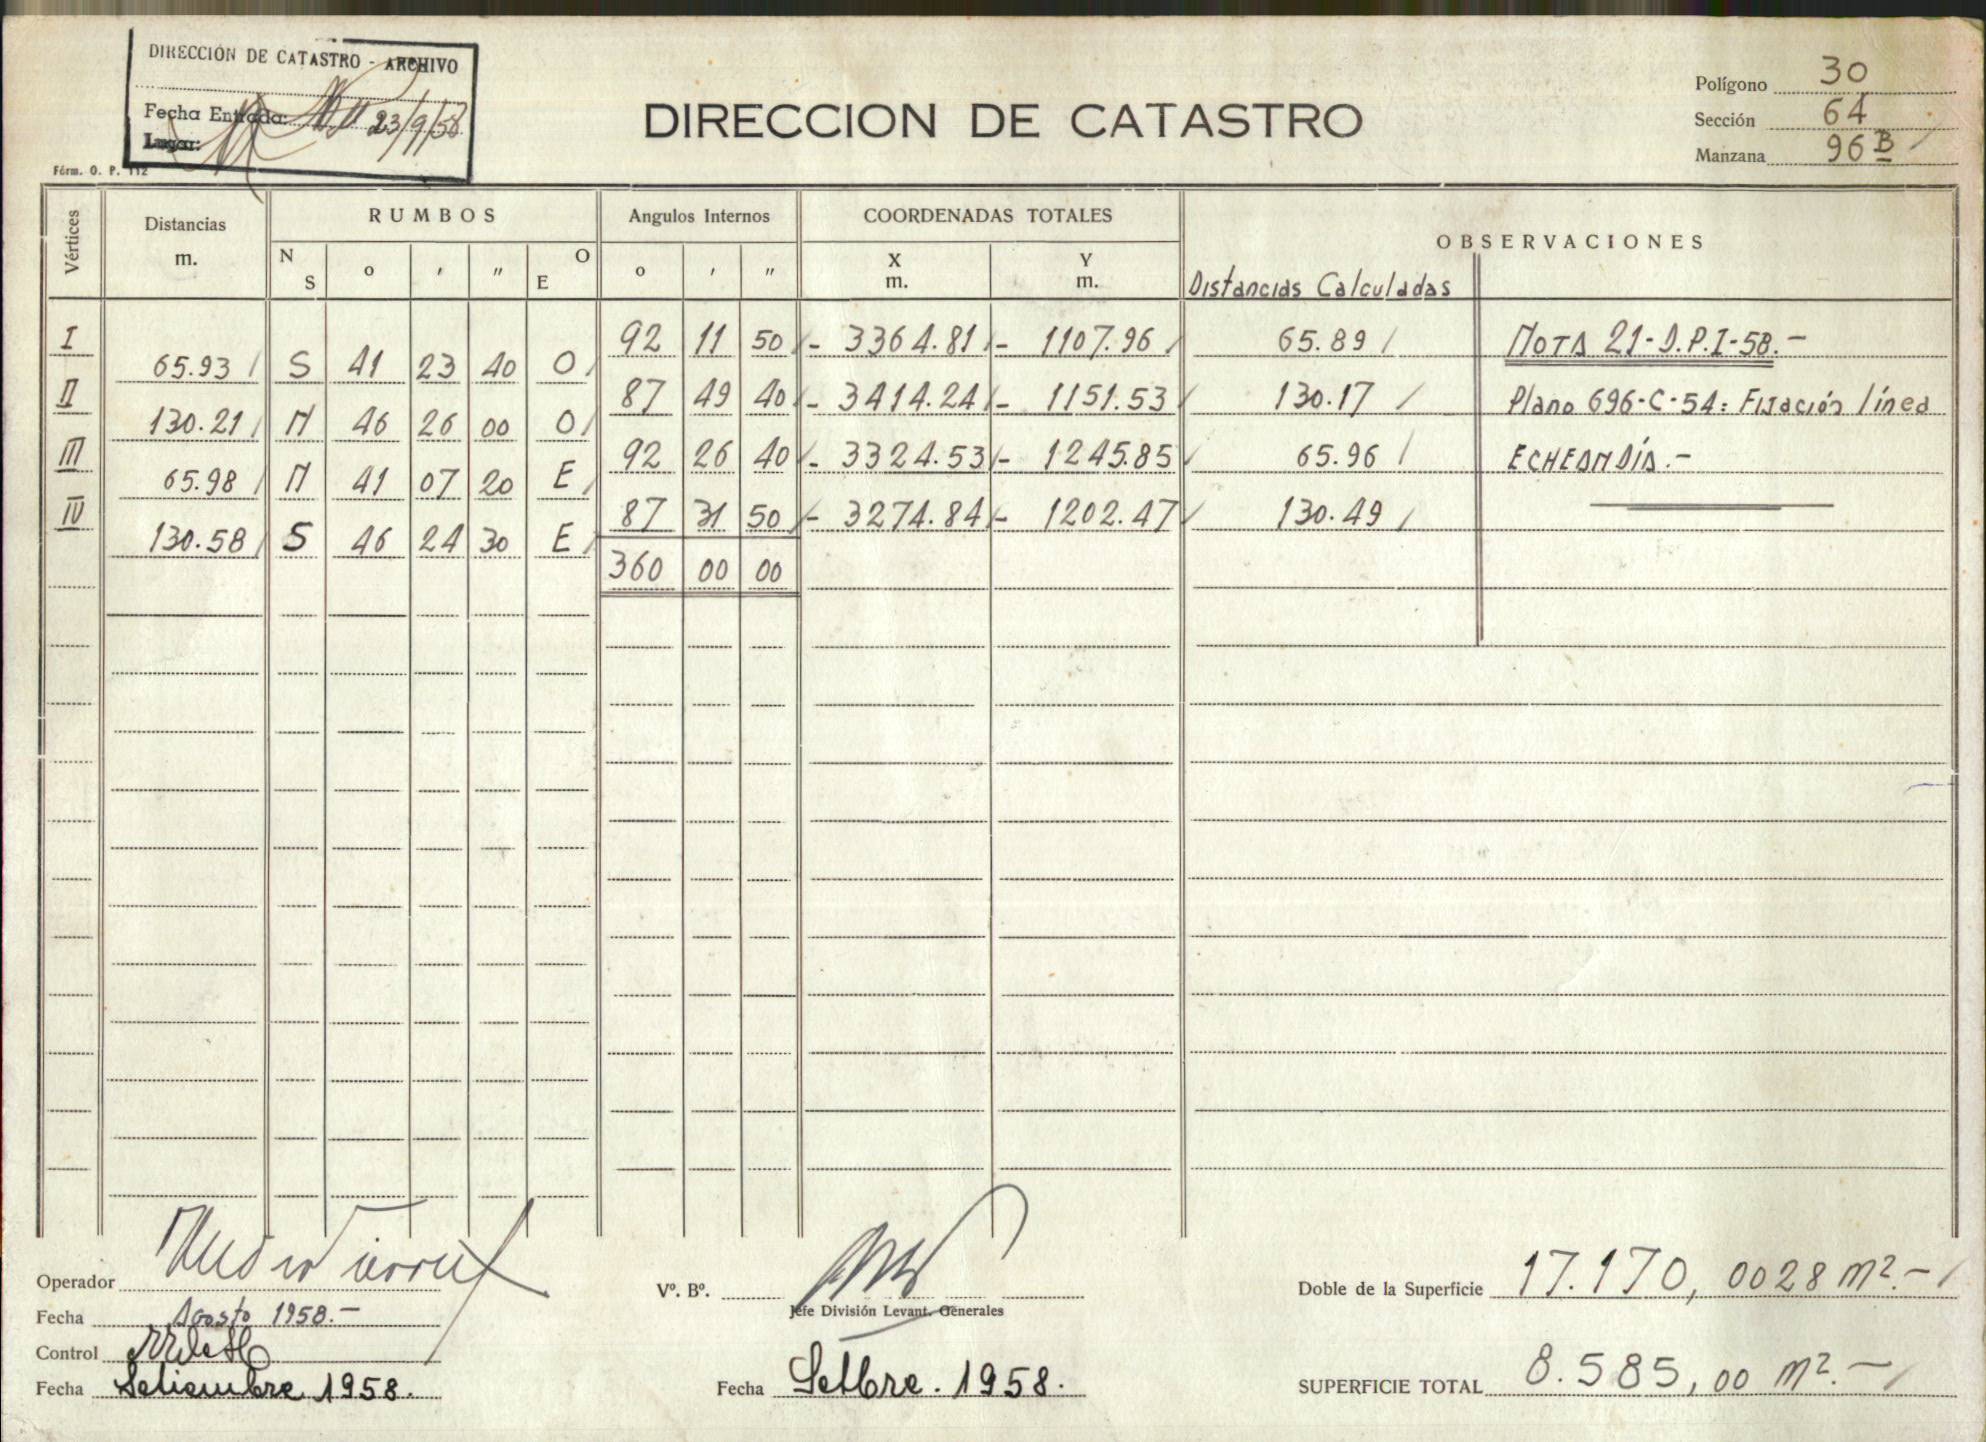 DIRECCIÓN DE CATASTRO - ARCHIVO
Fecha Entrada: 23/9/58
Lugar:
Fórm. O. P. 112
DIRECCION DE CATASTRO
Polígono 30
Sección 64
Manzana 96 B
Vértices Distancias m. RUMBOS Angulos Internos COORDENADAS TOTALES OBSERVACIONES
N S o ' " O E o ' " X m. Y m. Distancias Calculadas
I 92 11 50 - 3364.81 - 1107.96 65.89 NOTA 21-D.P.I-58.-
65.93 S 41 23 40 O
II 87 49 40 - 3414.24 - 1151.53 130.17 Plano 696-C-54: Fijación línea
130.21 N 46 26 00 O
III 92 26 40 - 3324.53 - 1245.85 65.96 ECHEANDÍA.-
65.98 N 41 07 20 E
IV 87 31 50 - 3274.84 - 1202.47 130.49
130.58 S 46 24 30 E
360 00 00
Operador
Fecha Agosto 1958.-
Control
Fecha Setiembre 1958.
Vº. Bº.
Jefe División Levant. Generales
Fecha Setbre. 1958.
Doble de la Superficie 17.170,0028 m².-
SUPERFICIE TOTAL 8.585,00 m².-